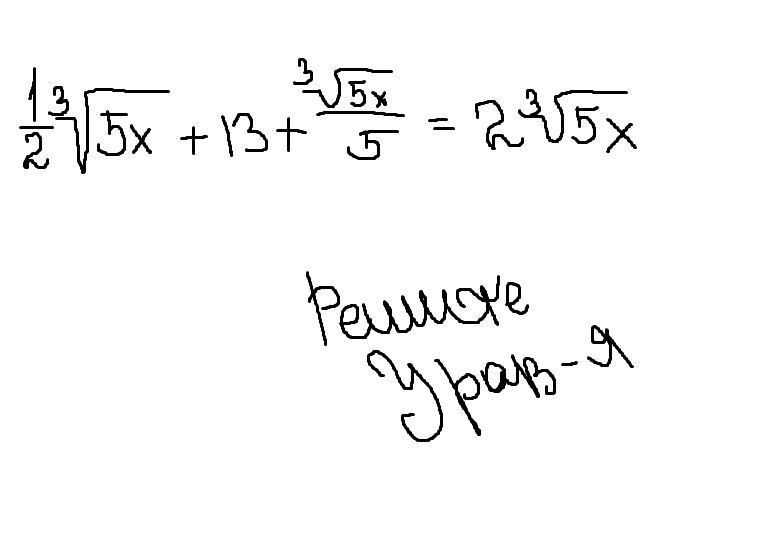 1/2 ∛5x + 13 + ∛5x/5 = 2∛5x
Решите
Урав-я